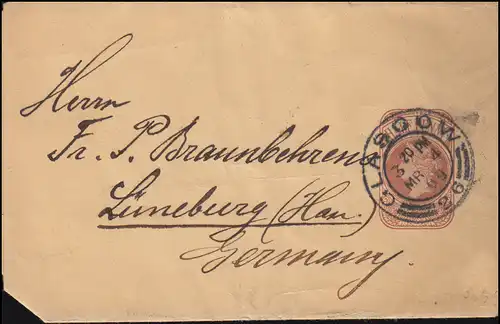 Herrn
Fr. P. Braunbehrens
Lüneburg (Han.)
Germany.
GLASGOW
3 20 PM
MR 4
99
26